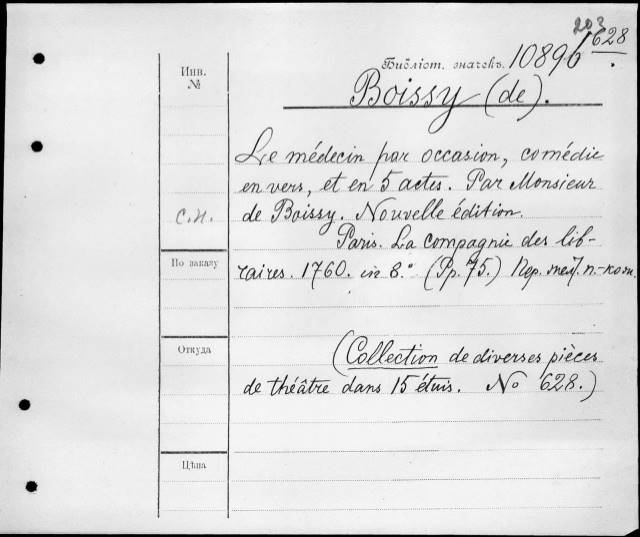 203
628
Библіот. значекъ. 10896
Инв.
№
Boissy (de).
Le médecin par occasion, comédie
en vers, et en 5 actes. Par Monsieur
de Boissy. Nouvelle édition.
с.н.
Paris. La compagnie des lib-
raires. 1760. in 8.° (Pp. 75.)
По заказу
Откуда
(Collection de diverses pièces
de théâtre dans 15 étuis. No 628.)
Цѣна